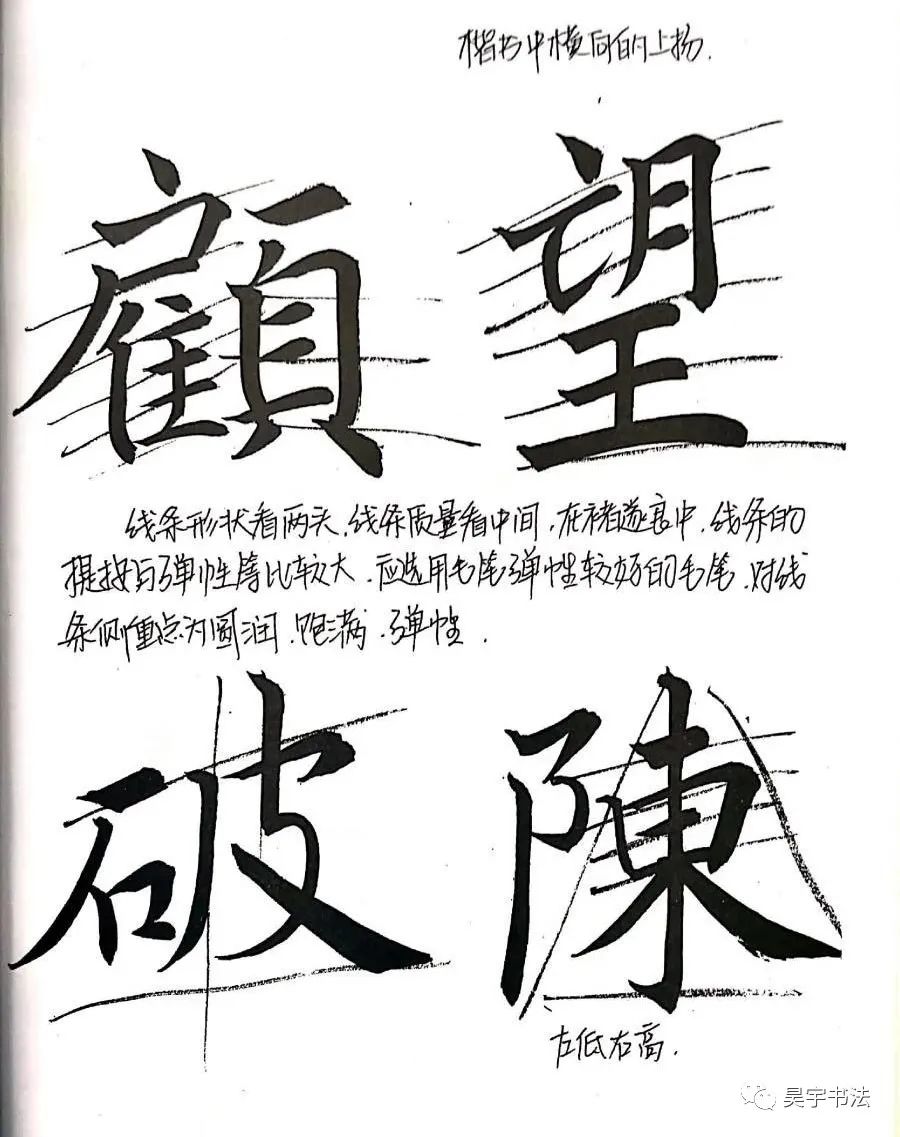 楷书中横向的上扬.
顧望
线条形状看两头.线条质量看中间,在褚遂良中.线条的
提按与弹性等比较大.应选用毛笔弹性较好的毛笔.对线
条侧重点为圆润.饱满.弹性.
破陳
左低右高.
昊宇书法